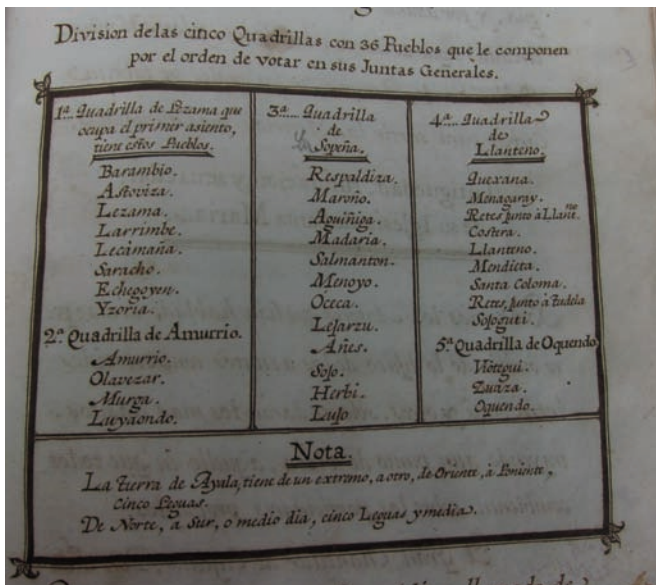 Division de las cinco Quadrillas con 36 Pueblos que le componen
por el orden de votar en sus Juntas Generales.
1ª Quadrilla de Lezama que
ocupa el primer asiento,
tiene estos Pueblos.
Barambio.
Astoviza.
Lezama.
Larrimbe.
Lecámaña.
Saracho.
Echegoyen.
Yzoria.
2ª Quadrilla de Amurrio.
Amurrio.
Olavezar.
Murga.
Luyaondo.
3ª Quadrilla
de
Sopeña.
Respaldiza.
Maroño.
Aguiñiga.
Madaria.
Salmanton.
Menoyo.
Oceca.
Lejarzu.
Añes.
Sojo.
Herbi.
Lujo.
4ª Quadrilla
de
Llanteno.
Quexana.
Menagaray.
Retes junto à Llanteno.
Costera.
Llanteno.
Mendieta.
Santa Coloma.
Retes, junto à Tudela
Sojoguti.
5ª Quadrilla de Oquendo
Viotegui.
Zuaza.
Oquendo.
Nota.
La tierra de Ayala, tiene de un extremo, a otro, de Oriente, à Poniente,
cinco Leguas.
De Norte, a Sur, o medio dia, cinco Leguas y media.